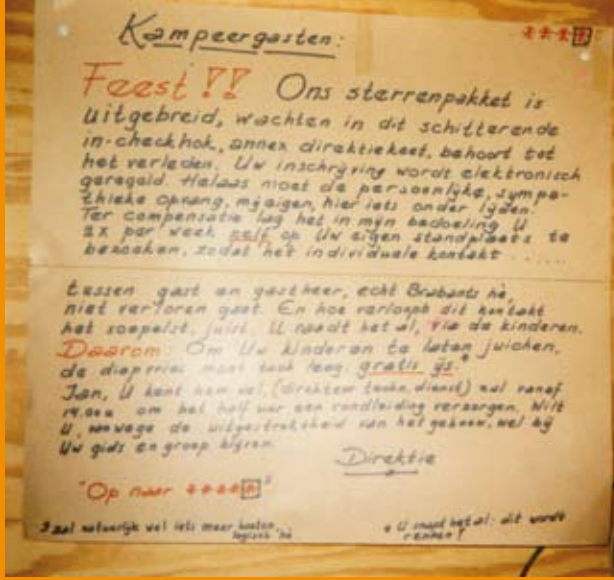 Kampeergasten:
****
Feest !! Ons sterrenpakket is
uitgebreid, wachten in dit schitterende
in-checkhok, annex direktiekeet, behoort tot
het verleden. Uw inschrijving wordt elektronisch
geregeld. Helaas moet de persoonlijke, sympa-
thieke opvang, mij eigen, hier iets onder lijden.
Ter compensatie lag het in mijn bedoeling U
2x per week zelf op Uw eigen standplaats te
bezoeken, zodat het individuele kontakt ......
tussen gast en gastheer, echt Brabants hè,
niet verloren gaat. En hoe verloopt dit kontakt
het soepelst, juist, U raadt het al, via de kinderen.
Daarom: Om Uw kinderen te laten juichen,
de diepvries moet toch leeg: gratis ijs.*
Jan, U kent hem wel, (direkteur techn. dienst) zal vanaf
14.00u om het half uur een rondleiding verzorgen. Wilt
U, vanwege de uitgestrektheid van het gebouw, wel bij
Uw gids en groep blijven.
Direktie
"Op naar *****"
zal natuurlijk wel iets meer kosten,
logisch hè
* U snapt het al: dit wordt
rennen!